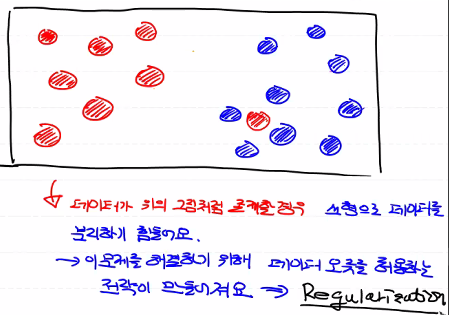 데이터가 위의 그림처럼 존재할 경우 선형으로 데이터를
분리하기 힘들어요.
→ 이 문제를 해결하기 위해 데이터 오류를 허용하는
전략이 만들어져요 → Regularization